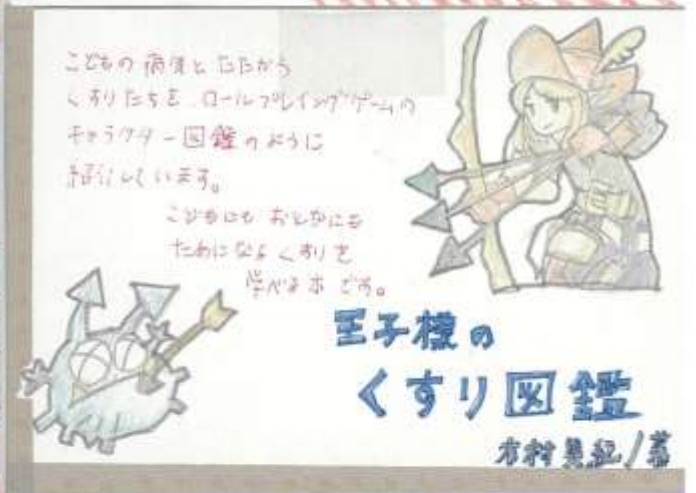 こどもの 病気と たたかう
くすりたちを、ロールプレイングゲームの
キャラクター図鑑のように
紹介しています。
こどもにも おとなにも
ためになる くすりを
学べる本 です。
王子様の
くすり図鑑
木村美紀/著